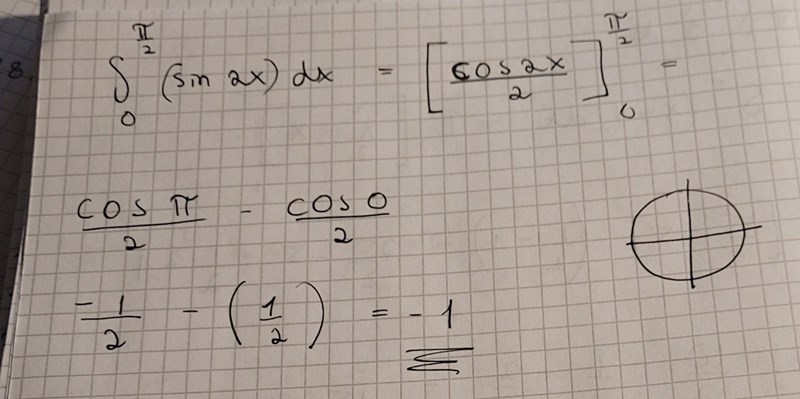 8.
∫₀^(π/2) (sin 2x) dx = [cos 2x / 2]₀^(π/2) =
cos π / 2 - cos 0 / 2
-1/2 - (1/2) = -1